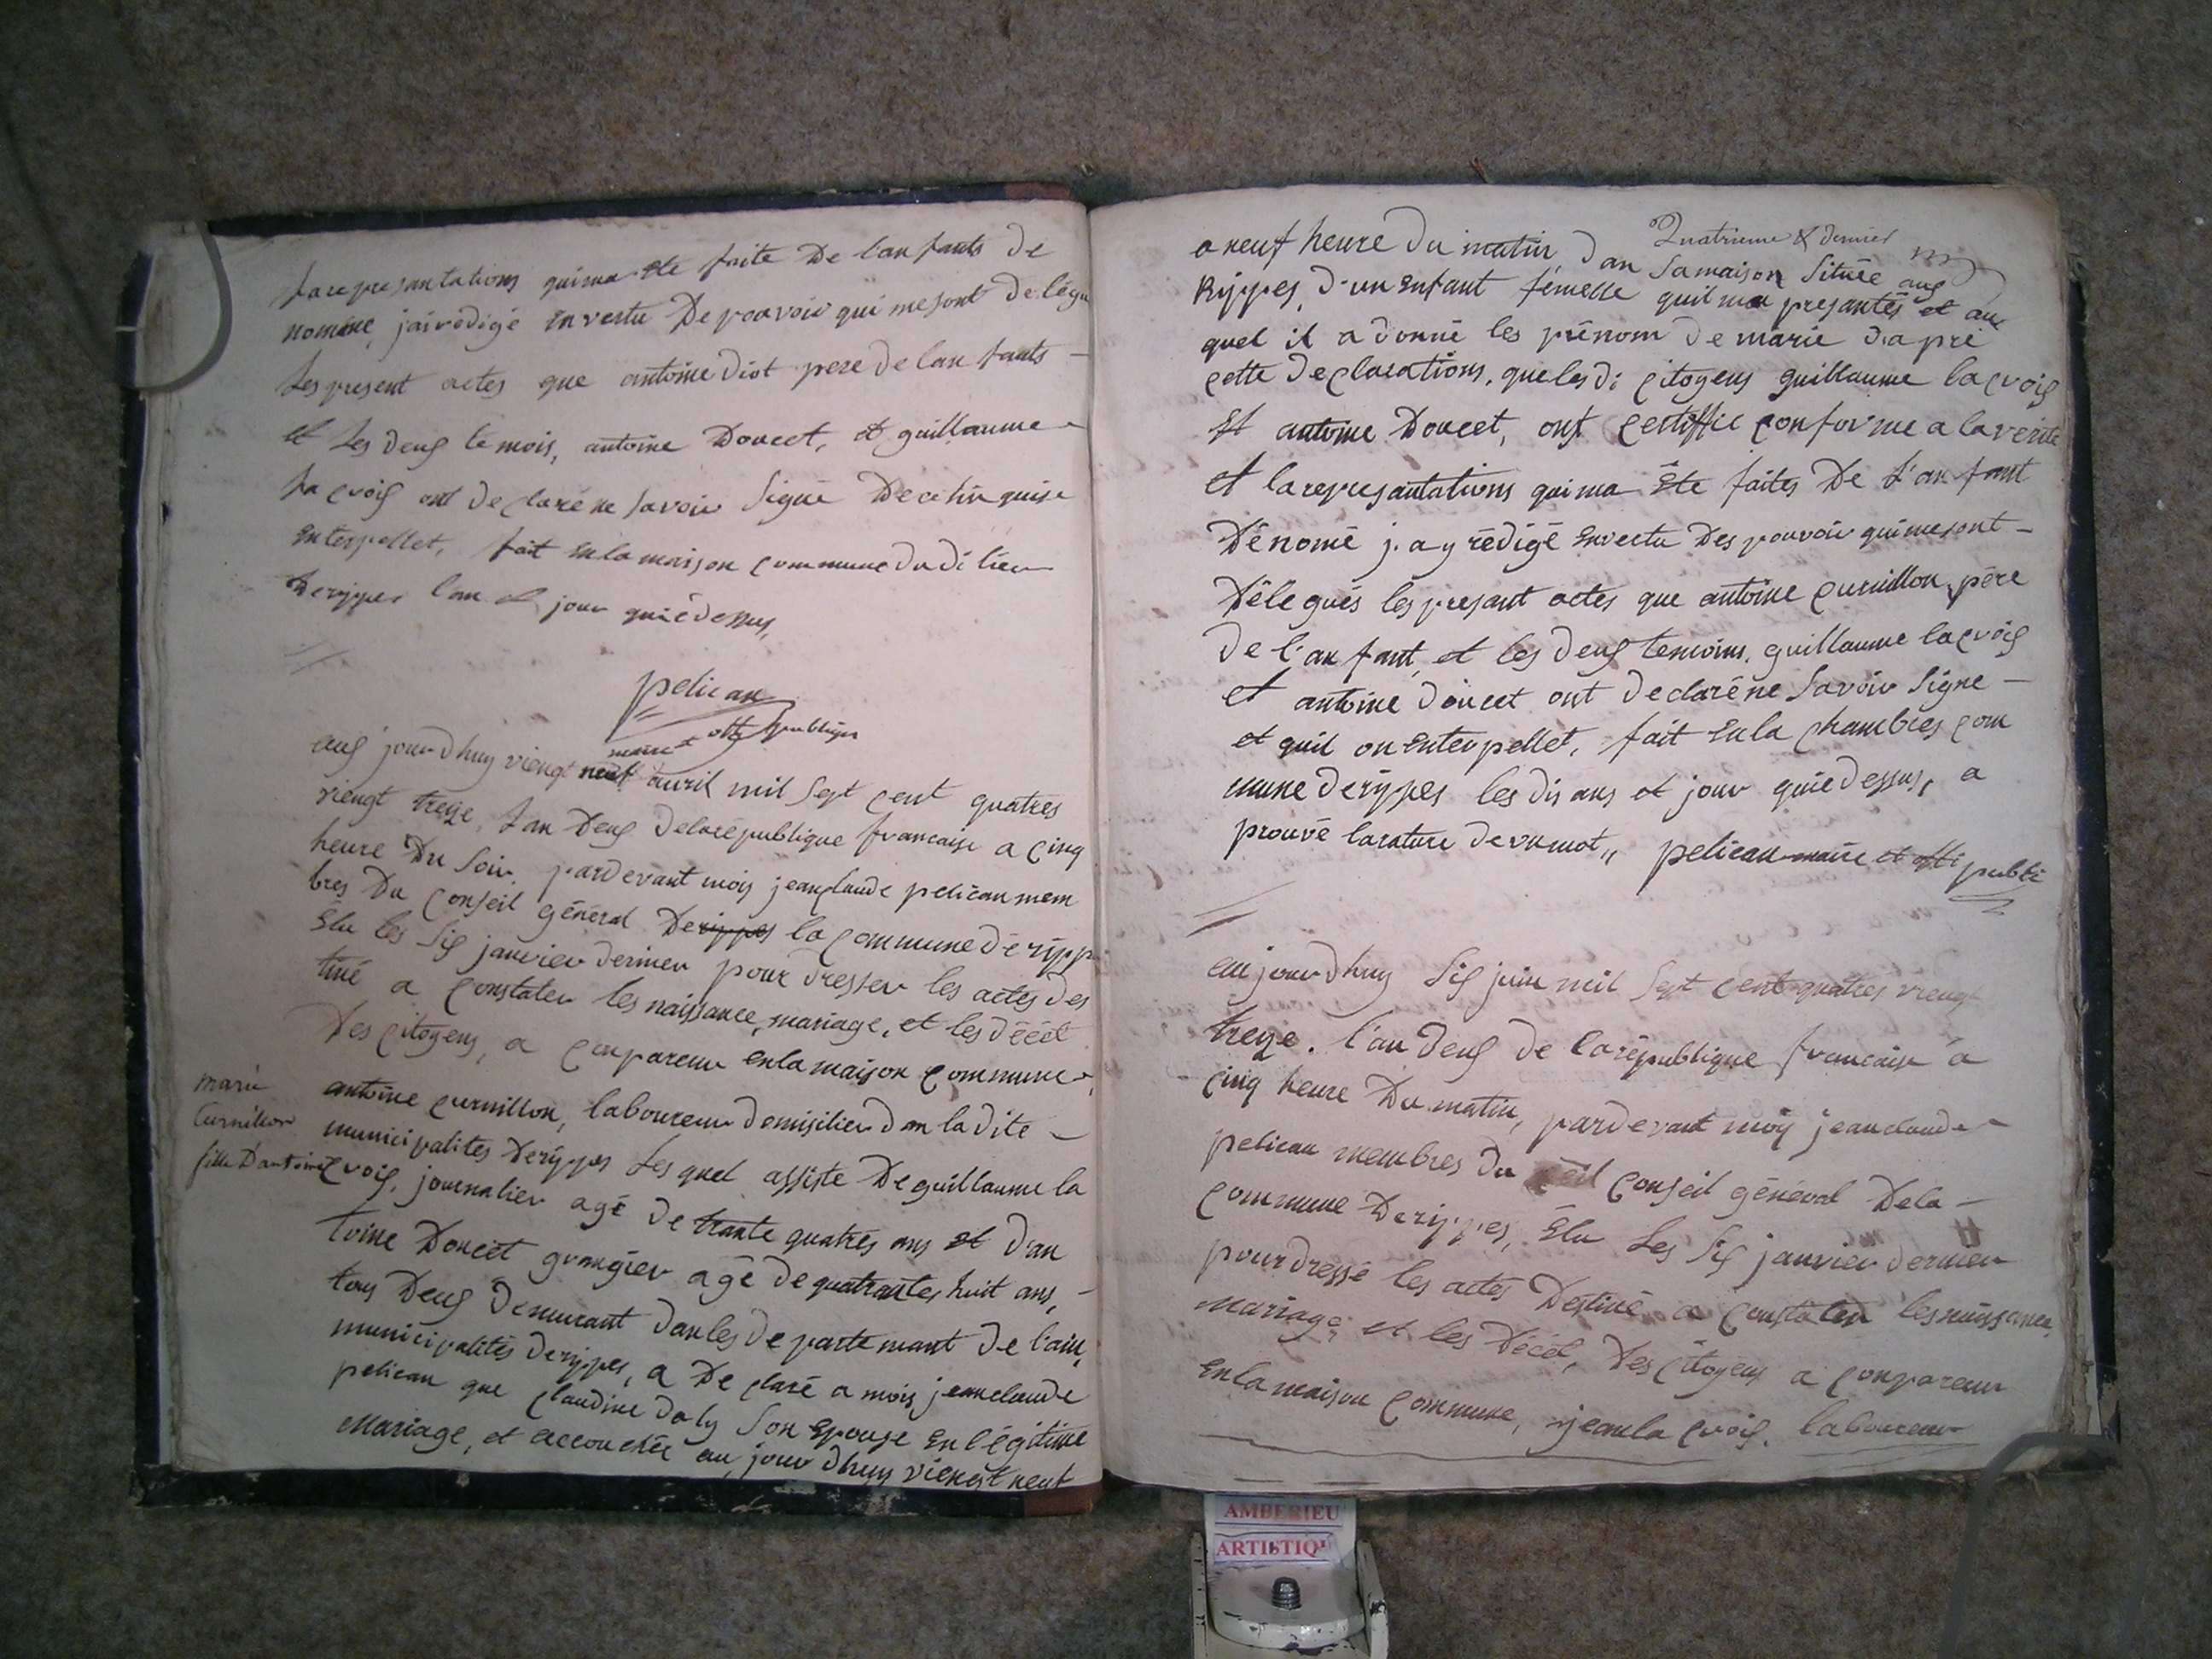 la representations quima ete faite De lanfants de
nomine, jairedigé en vertu De pouvoir qui mesont delégu
les present actes que antoine diot pere de lanfants
et les deus temois, antoine Doucet, et guillaume
la crois ont declaré ne savoir signé De ce
enterpellet, fait enla maison commune dudi lieu
Derippes lan et jour quiédessus,
pelican
maire et offi publique
auj jourdhuy viengt neuf avril mil sept cent quatres
viengt treze, lan Deus delarépublique francaise a cinq
heure Du soir pardevant mois jeanclaude pelican mem
bres Du conseil général Derippes la commune de ripp
Elu les sis janvier dernier pour dresser les actes des
tiné a constater les naissance, mariage, et les décet
Des citoyens, a compareu enla maison commune
antoine curnillon, laboureur domisilier dan ladite
marie
curnillon
fille D'antoine
municipalites Derippes les quel assiste De guillaume la
crois, journalier agé de trante quatres ans et dan
toine Doucet grangier agé de quatrantes huit ans,
tous Deus demurant dan les departemant de l'ain,
municipalités derippes, a De claré a mois jeanclaude
pelican que claudine daly son epouse en légitime
mariage, et accouchée au jour dhuy viengt neuf
Quatrieme & dernier
a neuf heure du matin dan samaison située aus
Rippes, d'un enfant femelle quil ma presantés et au
quel il a donné les prénom de marie dapré
cette declarations, que les di citoyens guillaume lacrois
et antoine Doucet, ont certiffié conforme a la verite
et larepresantations quima ête faites De l'anfant
Dénomé j'ay rédigé envertu Des pouvoir quimesont
Délegués les presant actes que antoine curnillon père
de l'anfant, et les deus temoins, guillaume lacrois
et antoine doucet ont declaréne savoir signe
et quil on enterpellet, fait enla chambres com
mune derippes les dis ans et jour quiédessus, a
prouvé larature devumot,, pelican maire et offi publi
aujourdhuy sis juin mil sept cent quatres viengt
treze. l'an deus de larépublique francaise a
cinq heure Du matin, pardevant moy jeanclaude
pelican membres du conseil géneral Dela
commune Derippes, Elu Les sis janvier dernier
pour dressé les actes Destiné a constater lesnaissance,
mariage et les Décét, Des citoyens a compareu
enla maison commune, jeanla crois. laboureur
AMBERIEU
ARTISTIQU